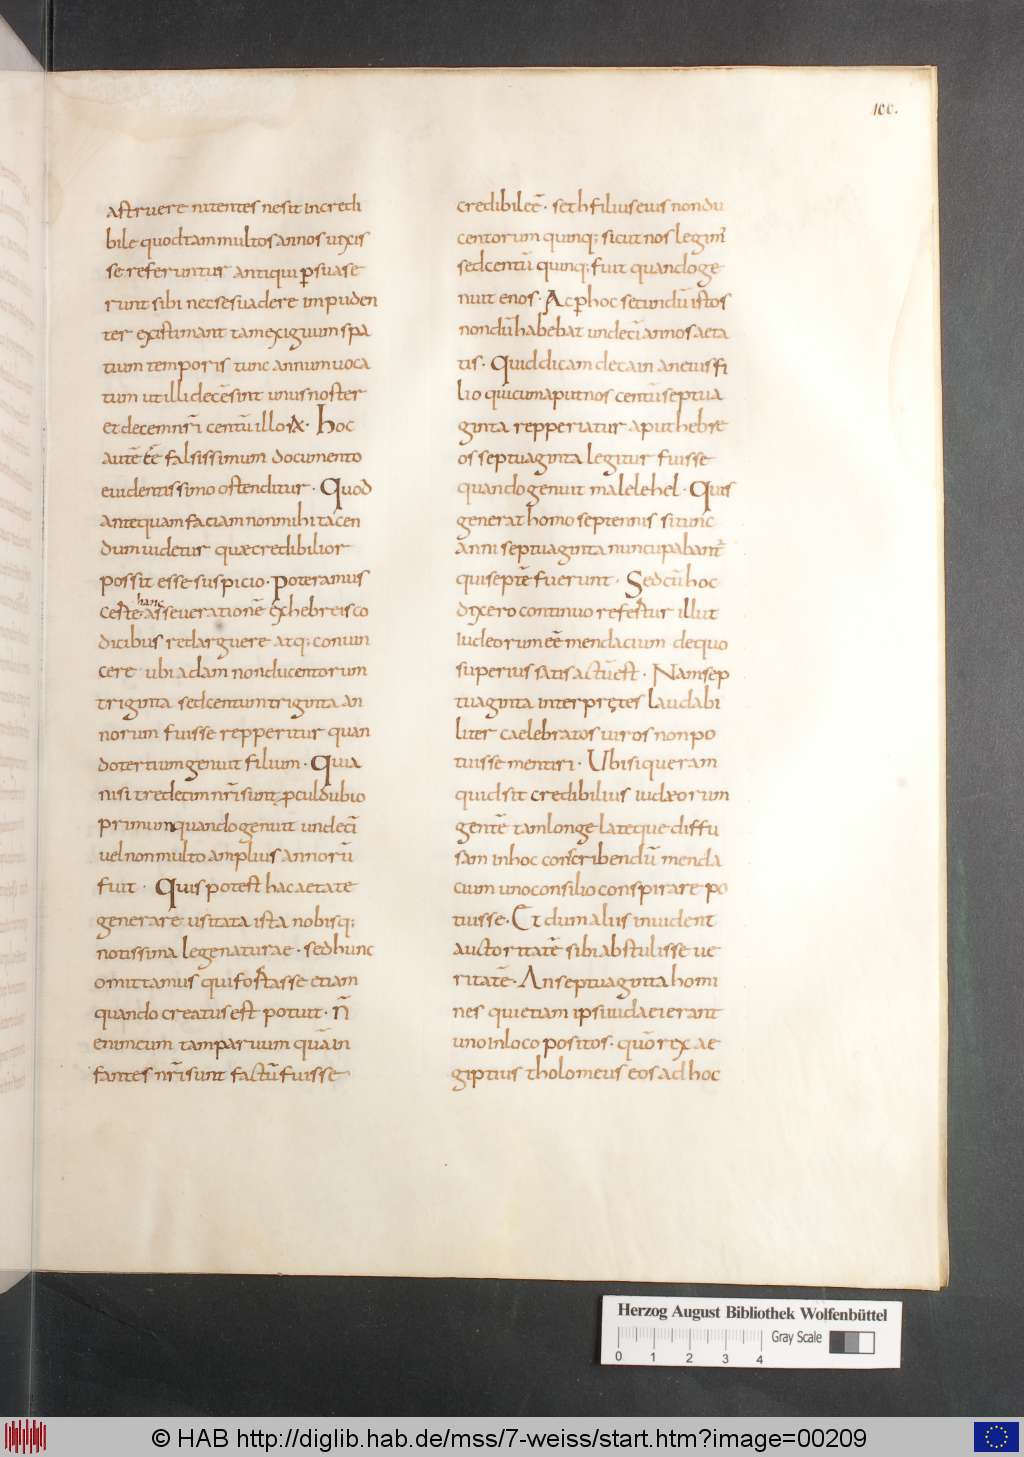 100.
astruere nitentes ne sit incredi
bile quod tam multos annos uixis
se referuntur antiqui psuase
runt sibi nec se suadere impuden
ter existimant tam exiguum spa
tium temporis tunc annum uoca
tum ut illi decē sint unus noster
et decem nr̄i centū illorꝝ. Hoc
autē eē falsissimum documento
euidentissimo ostenditur. Quod
antequam faciam non mihi tacen
dum uidetur quae credibilior
possit esse suspicio. Poteramus
hanc
certe asseueratione ex hebreis co
dicibus redarguere atq; conuin
cere ubi adam non ducentorum
triginta sed centum triginta an
norum fuisse repperitur quan
do tertium genuit filium. Quia
nisi tredecim nr̄i sunt ꝓcul dubio
primum quando genuit undecī
uel non multo amplius annorū
fuit. Quis potest hac aetate
generare usitata ista nobisq;
notissima lege naturae. sed hunc
omittamus qui fortasse etiam
quando creatus est potuit. n̄
enim cum tam paruum quā in
fantes nr̄i sunt factū fuisse
credibile ē. seth filius eius non du
centorum quinq; sicut nos legim'
sed centū quinq; fuit quando ge
nuit enos. Ac ꝑ hoc secundū istos
nondū habebat undecī annos aeta
tis. Quid dicam de cainan eius fi
lio qui cum aput nos centū septua
ginta repperiatur aput hebre
os septuaginta legitur fuisse
quando genuit malelehel. Quis
generat homo septennis si tunc
anni septuaginta nuncupabant'
qui septē fuerunt. Sed cū hoc
dixero continuo refertur illut
iudeorum eē mendacium de quo
superius satis actū est. Nam sep
tuaginta interpretes laudabi
liter caelebratos uiros non po
tuisse mentiri. Ubi si queram
quid sit credibilius iudæorum
gentē tam longe lateque diffu
sam in hoc conscribendū menda
cium uno consilio conspirare po
tuisse. Et dum aliis inuident
auctoritatē sibi abstulisse ue
ritatē. An septuaginta homi
nes qui etiam ipsi iudaei erant
uno in loco positos. quō rex ae
giptius tholomeus eos ad hoc
Herzog August Bibliothek Wolfenbüttel
0 1 2 3 4 Gray Scale
© HAB http://diglib.hab.de/mss/7-weiss/start.htm?image=00209